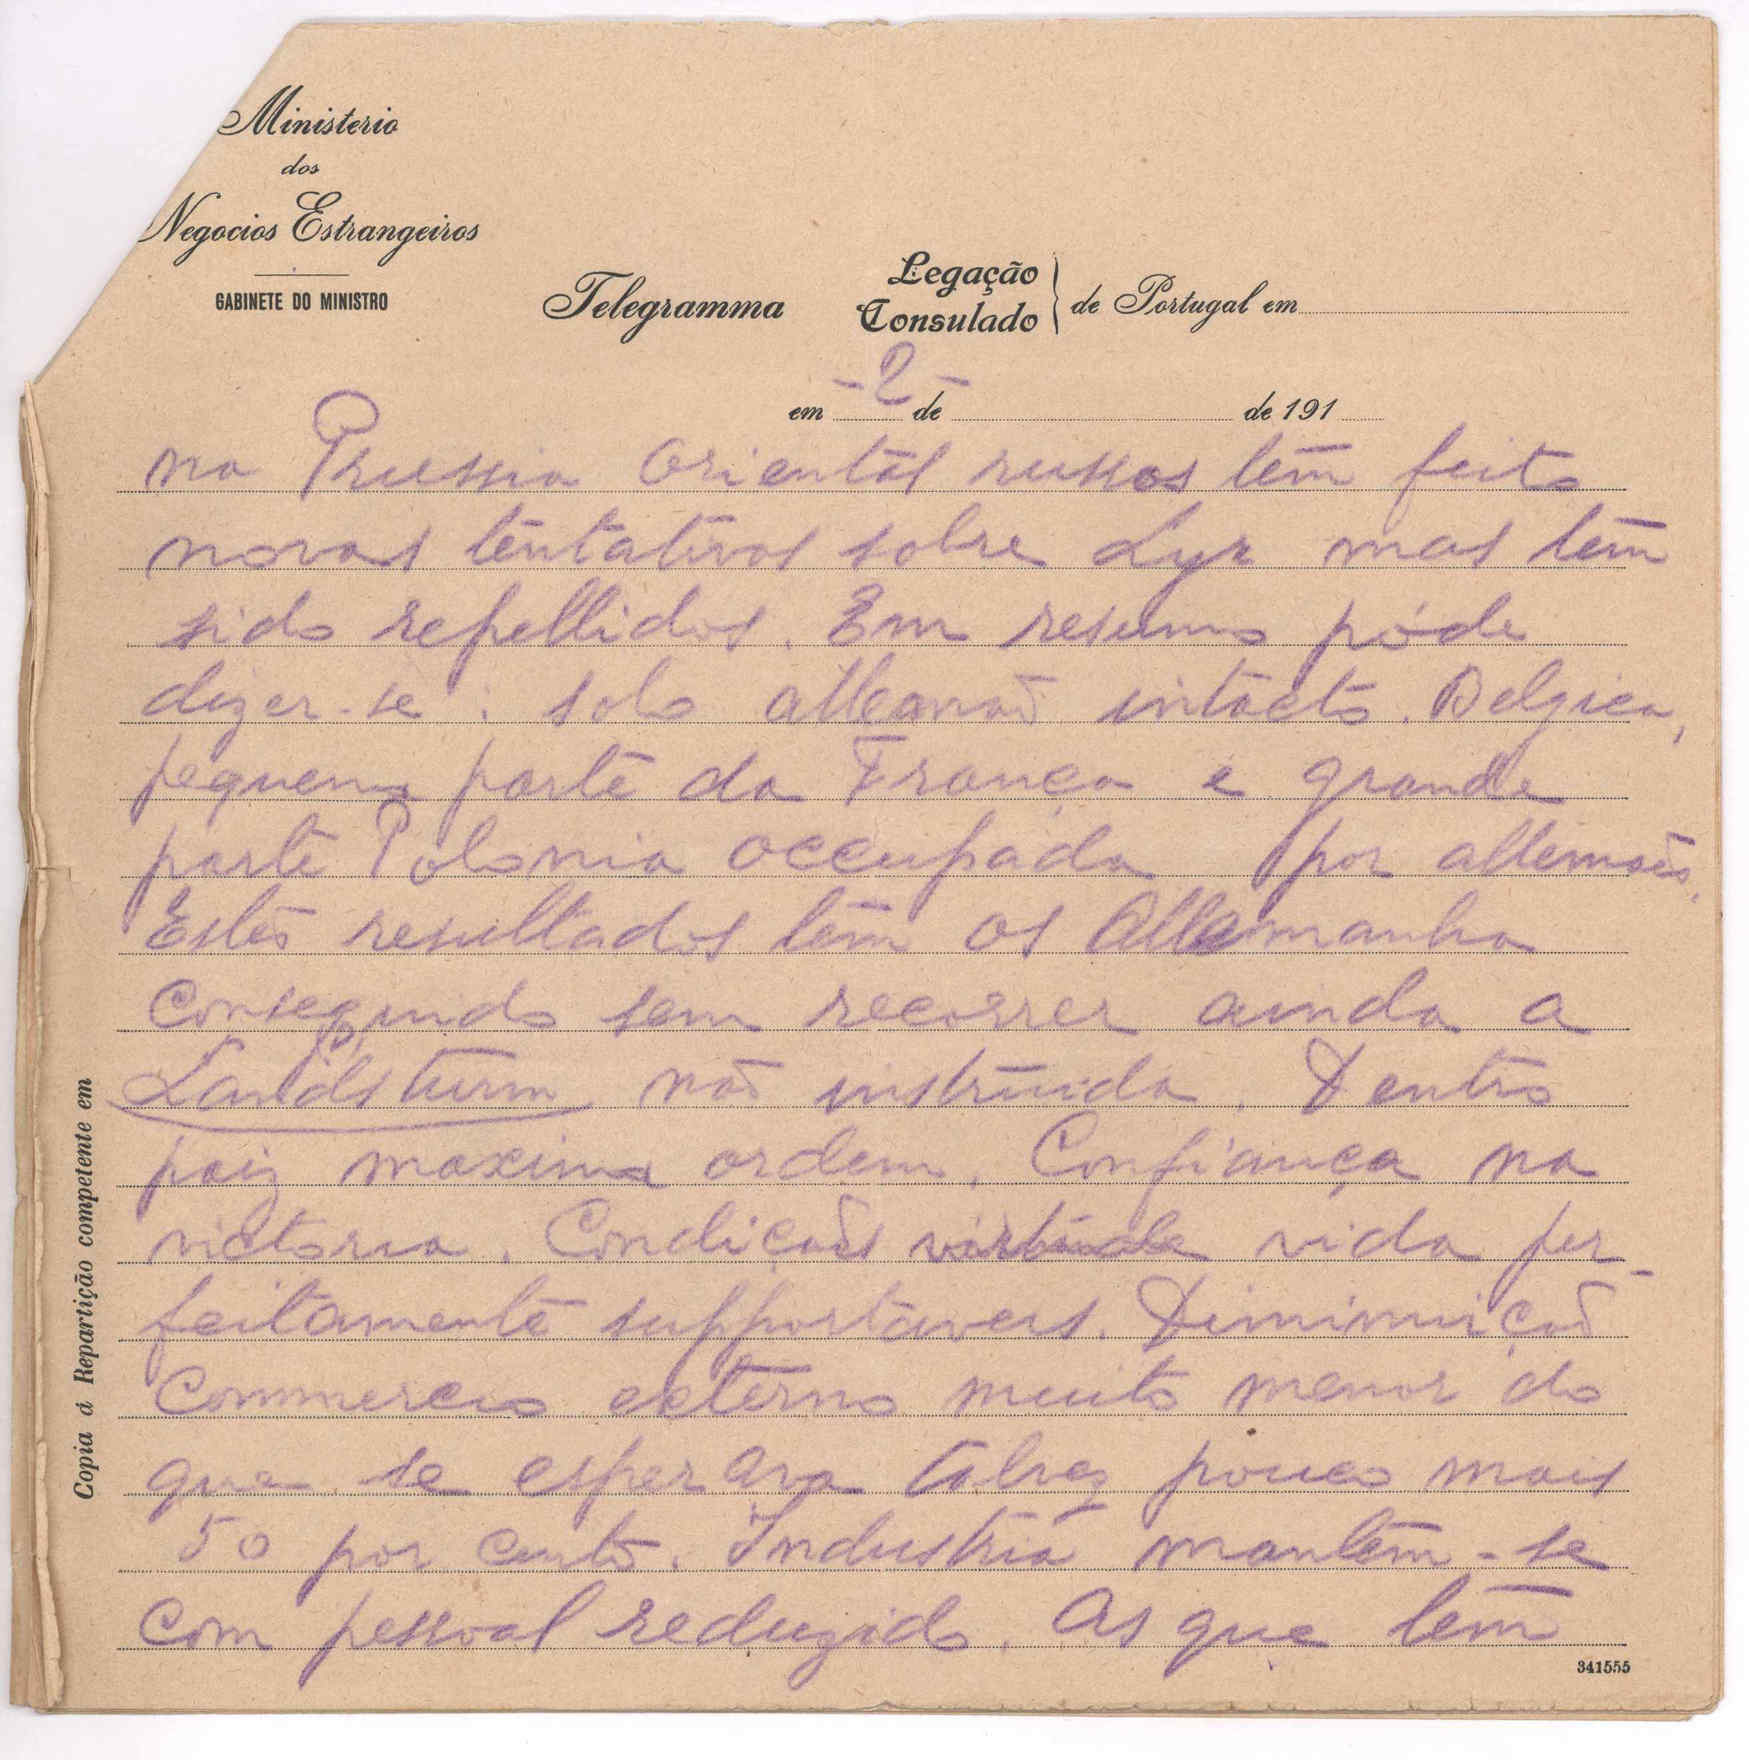 Ministerio
dos
Negocios Estrangeiros
GABINETE DO MINISTRO
Telegramma
Legação
Consulado
de Portugal em
- 2 -
em de de 191
na Prussia Oriental russos têm feito
novas tentativas sobre Lyk mas têm
sido repellidos. Em resumo póde
dizer-se: solo allemaõ intacto. Belgica,
pequena parte da França e grande
parte Polonia occupada por allemaẽs.
Estes resultados têm os Allemanha
conseguido sem recorrer ainda a
Landsturm naõ instruida. Dentro
paiz maxima ordem. Confiança na
victoria. Condiçoẽs vida per-
feitamente supportaveis. Diminuiçaõ
Commercio externo muito menor do
que se esperava talvez pouco mais
50 por cento. Industria mantêm-se
com pessoal reduzido. As que têm
Copia á Repartição competente em
341555